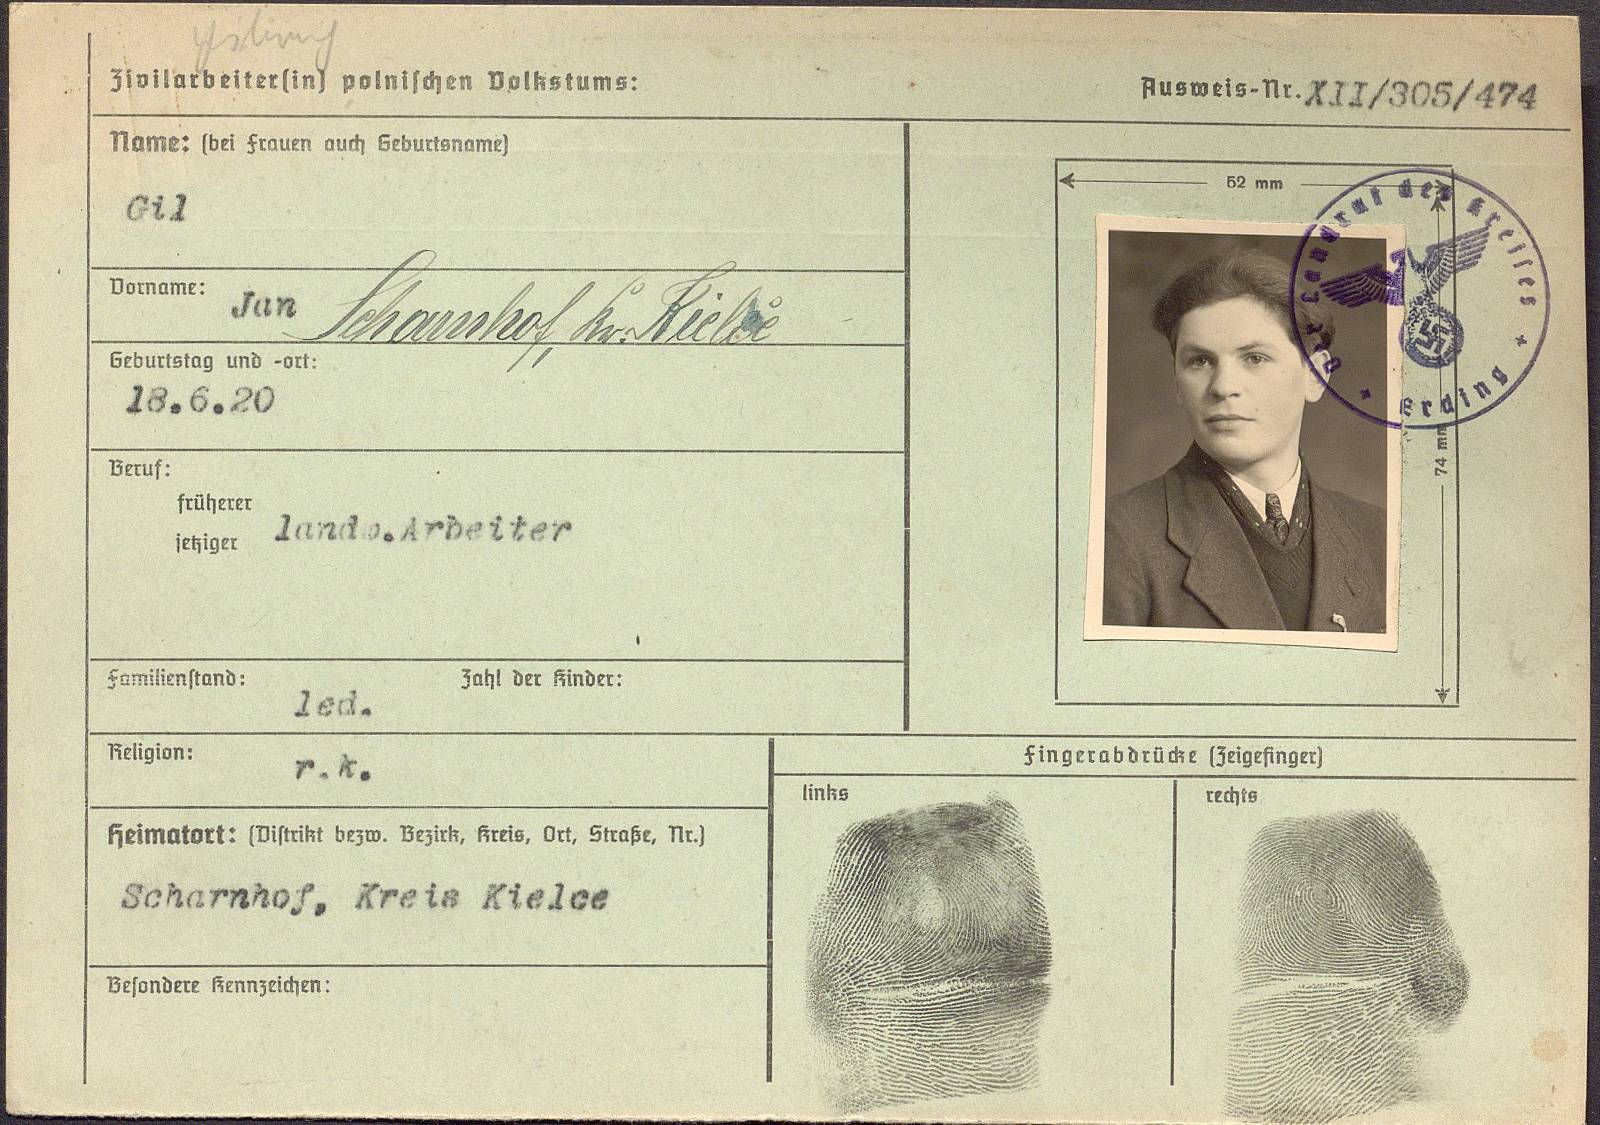 Zivilarbeiter(in) polnischen Volkstums:
Ausweis-Nr. XII/305/474
Name: (bei Frauen auch Geburtsname)
Gil
Vorname: Jan
Scharnhof, Kr. Kielce
Geburtstag und -ort:
18.6.20
Beruf:
früherer
jetziger
landw.Arbeiter
Familienstand: led.
Zahl der Kinder:
Religion: r.k.
Heimatort: (Distrikt bezw. Bezirk, Kreis, Ort, Straße, Nr.)
Scharnhof, Kreis Kielce
Besondere Kennzeichen:
52 mm
74 mm
Der Landrat des Kreises
* Erding *
Fingerabdrücke (Zeigefinger)
links
rechts